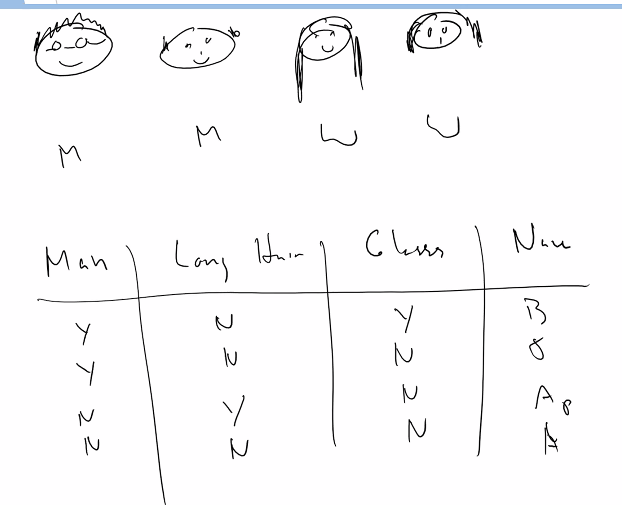 M M W W
Man Long Hair Glasses Name
Y N Y B
Y N N O
N Y N Ap
N N N A